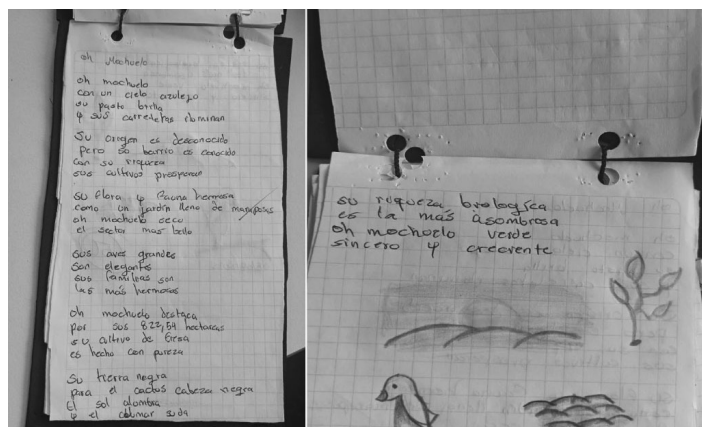 oh Mochuelo
oh mochuelo
con un cielo azulejo
su pasto brilla
y sus carreteras dominan
Su origen es desconocido
pero su barrio es conocido
con su riqueza
sus cultivos prosperan
Su flora y fauna hermosa
como un jardín lleno de mariposas
oh mochuelo seco
el sector mas bello
sus aves grandes
son elegantes
sus familias son
las más hermosas
oh mochuelo destaca
por sus 822,54 hectareas
su cultivo de fresa
es hecho con pureza
Su tierra negra
para el cactus cabeza negra
El sol alumbra
y el suda
su riqueza biologica
es la más asombrosa
oh mochuelo verde
sincero y creciente